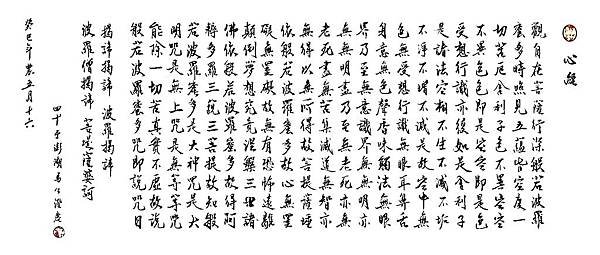 心經
觀自在菩薩行深般若波羅
蜜多時照見五蘊皆空度一
切苦厄舍利子色不異空空
不異色色即是空空即是色
受想行識亦復如是舍利子
是諸法空相不生不滅不垢
不淨不增不減是故空中無
色無受想行識無眼耳鼻舌
身意無色聲香味觸法無眼
界乃至無意識界無無明亦
無無明盡乃至無老死亦無
老死盡無苦集滅道無智亦
無得以無所得故菩提薩埵
依般若波羅蜜多故心無罣
礙無罣礙故無有恐怖遠離
顛倒夢想究竟涅槃三世諸
佛依般若波羅蜜多故得阿
耨多羅三藐三菩提故知般
若波羅蜜多是大神咒是大
明咒是無上咒是無等等咒
能除一切苦真實不虛故說
般若波羅蜜多咒即說咒曰
揭諦揭諦 波羅揭諦
波羅僧揭諦 菩提薩婆訶
癸巳年農五月十六